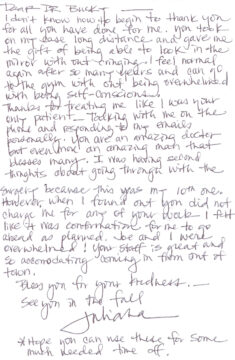 Dear DR. Bucky —
I don't know how to begin to thank you
for all you have done for me. You took
on my case long distance and gave me
the gift of being able to look in the
mirror with out cringing. I feel normal
again after so many years and can go
to the gym with out being overwhelmed
with being self-conscious.
Thanks for treating me like I was your
only patient — Talking with me on the
phone and responding to my emails
personally. You are an amazing doctor
but even more an amazing man that
blesses many. I was having second
thoughts about going through with the
surgery because this was my 10th one.
However when I found out you did not
charge me for any of your work I felt
like it was confirmation for me to go
ahead as planned. Joe and I were
overwhelmed! Your staff is great and
so accomodating coming in from out of
town.
Bless you for your kindness. —
See you in the fall
Juliana
* Hope you can use these for some
much needed time off.